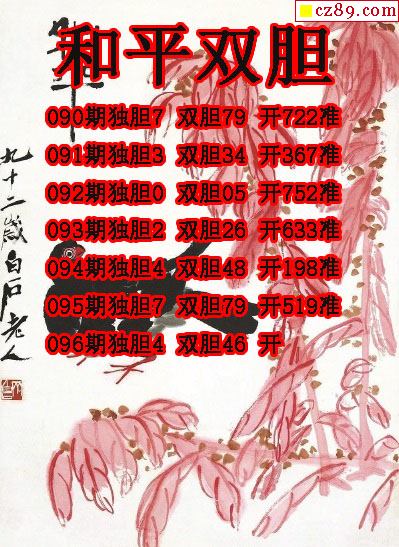 cz89.com
和平双胆
090期独胆7 双胆79 开722准
091期独胆3 双胆34 开367准
092期独胆0 双胆05 开752准
093期独胆2 双胆26 开633准
094期独胆4 双胆48 开198准
095期独胆7 双胆79 开519准
096期独胆4 双胆46 开
九十二岁白石老人